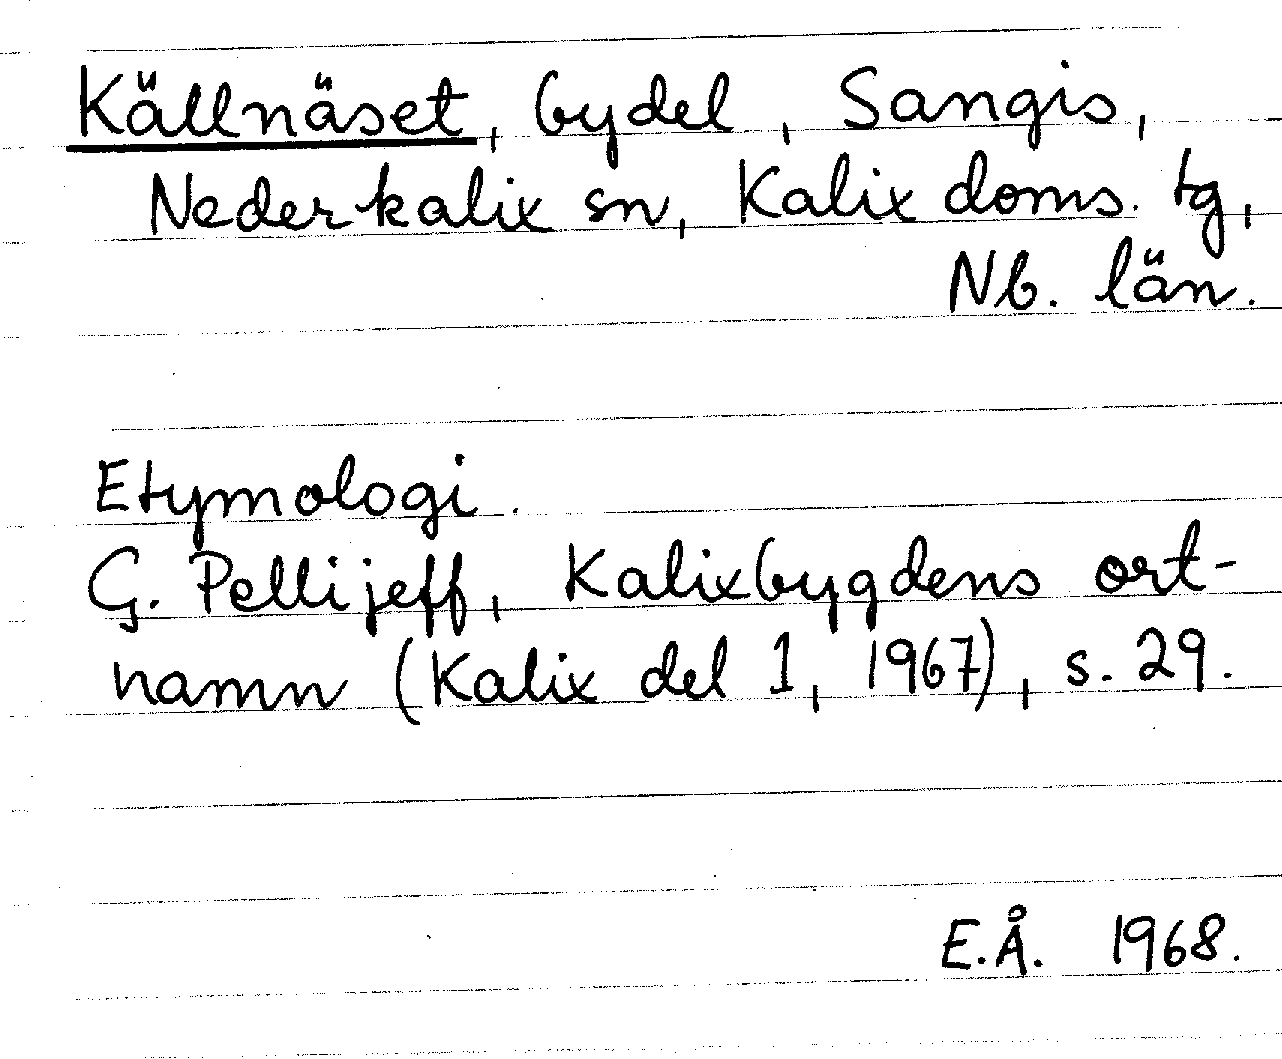 Källnäset, bydel, Sangis,
Nederkalix sn, Kalix doms. tg,
Nb. län.
Etymologi.
G. Pellijeff, Kalixbygdens ort-
namn (Kalix del 1, 1967), s. 29.
E.Å. 1968.